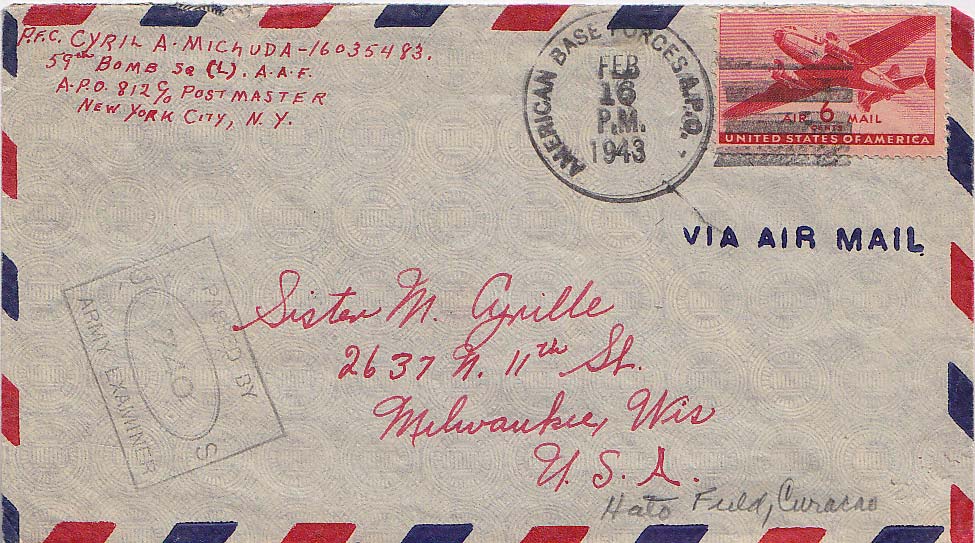 P.F.C. CYRIL A. MICHUDA-16035483.
59th BOMB Sq (L). A.A.F.
A.P.O. 812 c/o POSTMASTER
NEW YORK CITY, N.Y.
AMERICAN BASE FORCES A.P.O.
FEB
16
P.M.
1943
AIR 6 MAIL
CENTS
UNITED STATES OF AMERICA
VIA AIR MAIL
PASSED BY
U S
ARMY EXAMINER
Sister M. Cyrille
2637 N. 11th St.
Milwaukee, Wis
U.S.A.
Hato Field, Curacao